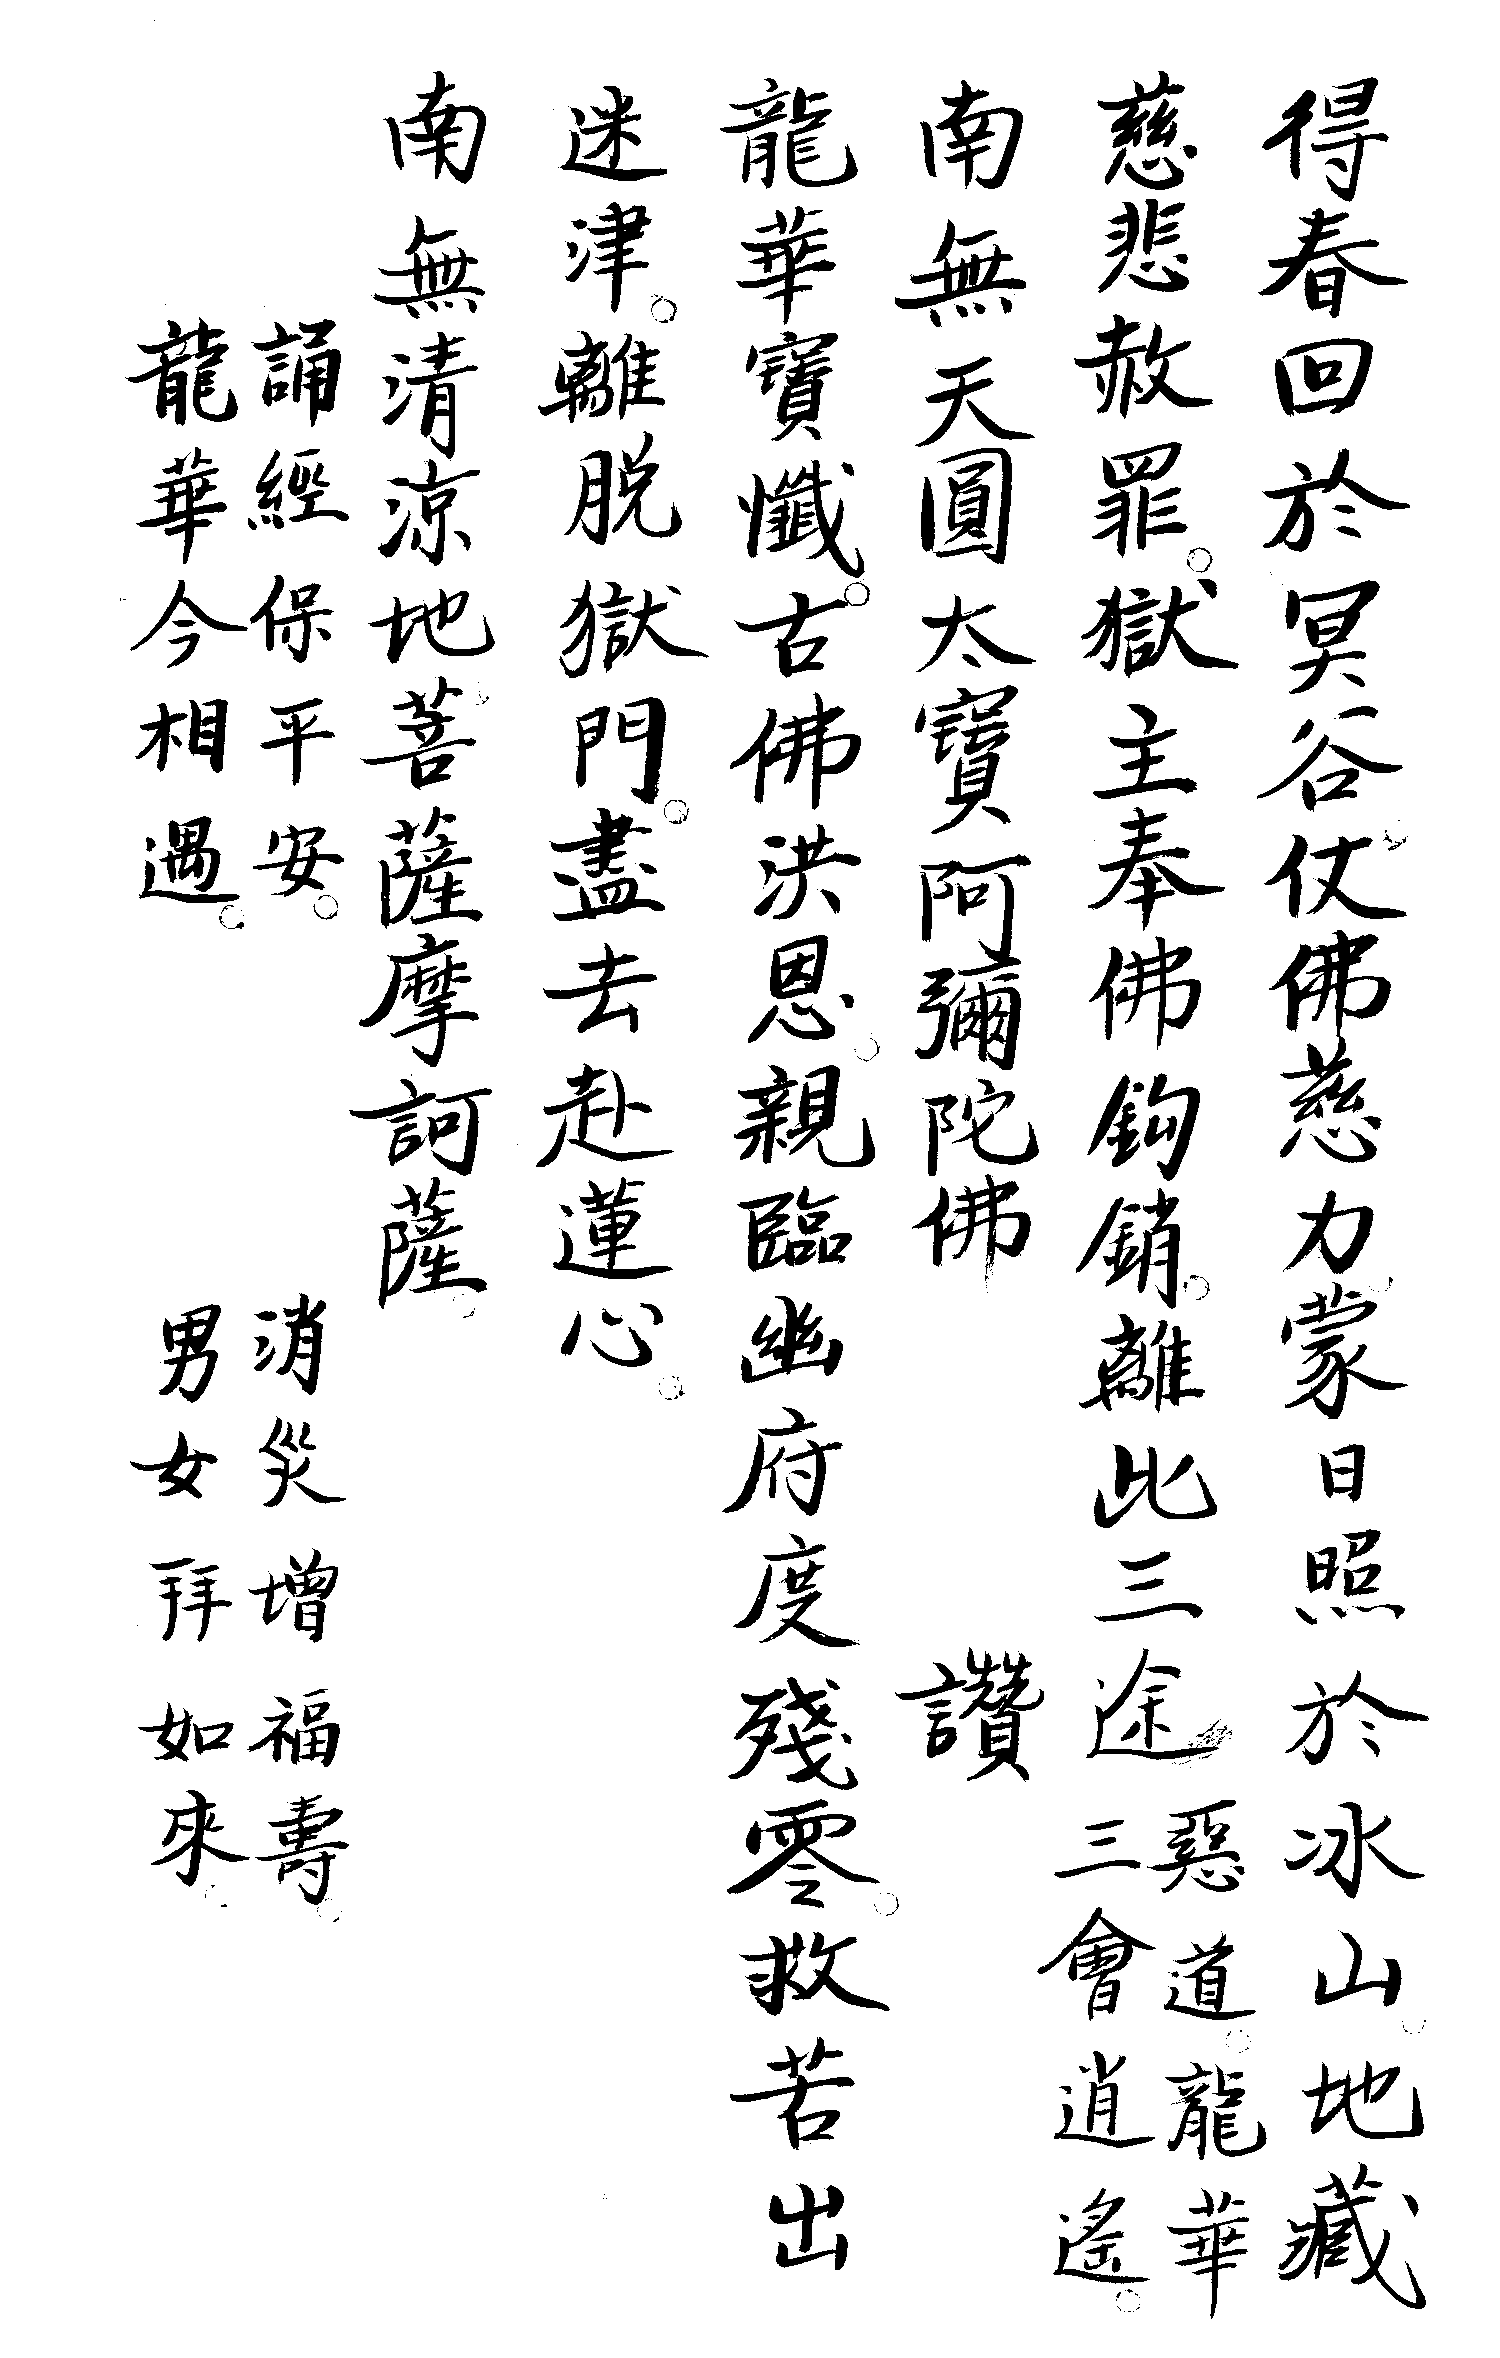 得春回於冥谷仗佛慈力蒙日照於冰山地藏
慈悲赦罪。獄主奉佛鈎銷。離此三途
惡道。龍華
三會逍遙。
南無天圓太寶阿彌陀佛
讚
龍華寶懺。古佛洪恩。親臨幽府度殘零。救苦出
迷津。離脱獄門。盡去赴蓮心。
南無清涼地菩薩摩訶薩。
誦經保平安。
消災增福壽。
龍華今相遇。
男女拜如來。